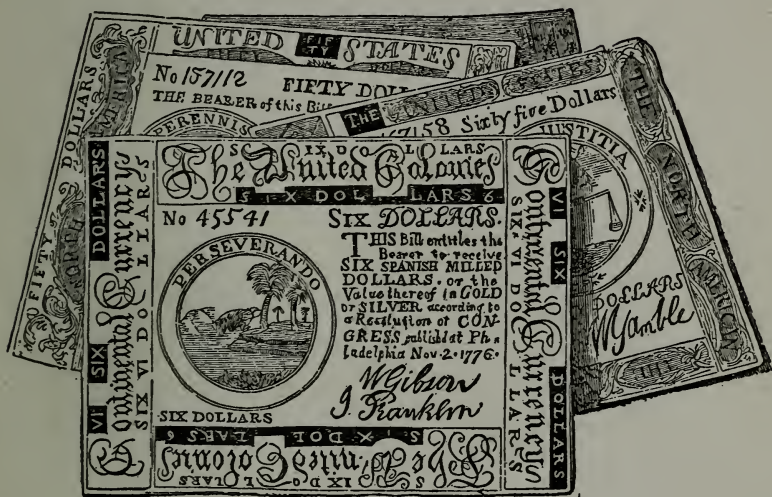 UNITED FIFTY STATES
No 157/12 FIFTY DOLL
THE BEARER of this Bill
DOLLARS
AMERICA
PERENNIS
FIFTY
NORTH
THE UNITED STATES
67158 Sixty five Dollars
JUSTITIA
DOLLARS
W Gamble
THE
NORTH
AMERICAN
SIX DOLLARS
The United Colonies
SIX DOLLARS 6
No 45541 SIX DOLLARS.
THIS Bill entitles the
Bearer to receive
SIX SPANISH MILLED
DOLLARS, or the
Value thereof in GOLD
or SILVER according to
a Resolution of CON-
GRESS, publishd at Phi
ladelphia Nov. 2. 1776.
W Gibson
J. Franklin
PERSEVERANDO
SIX DOLLARS
VI SIX DOLLARS
Continental Currency
SIX VI DOLLARS
VI SIX DOLLARS
Continental Currency
SIX, VI DOLLARS
SIX DOLLARS 6
The United Colonies
SIX DOLLARS